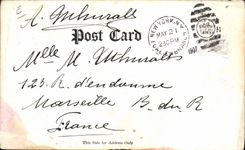 Post Card
NEW YORK, N.Y.
MAY 21
230PM
1907
Mlle M.
123 R. d'endoume
Marseille B. du R
France
This Side for Address Only